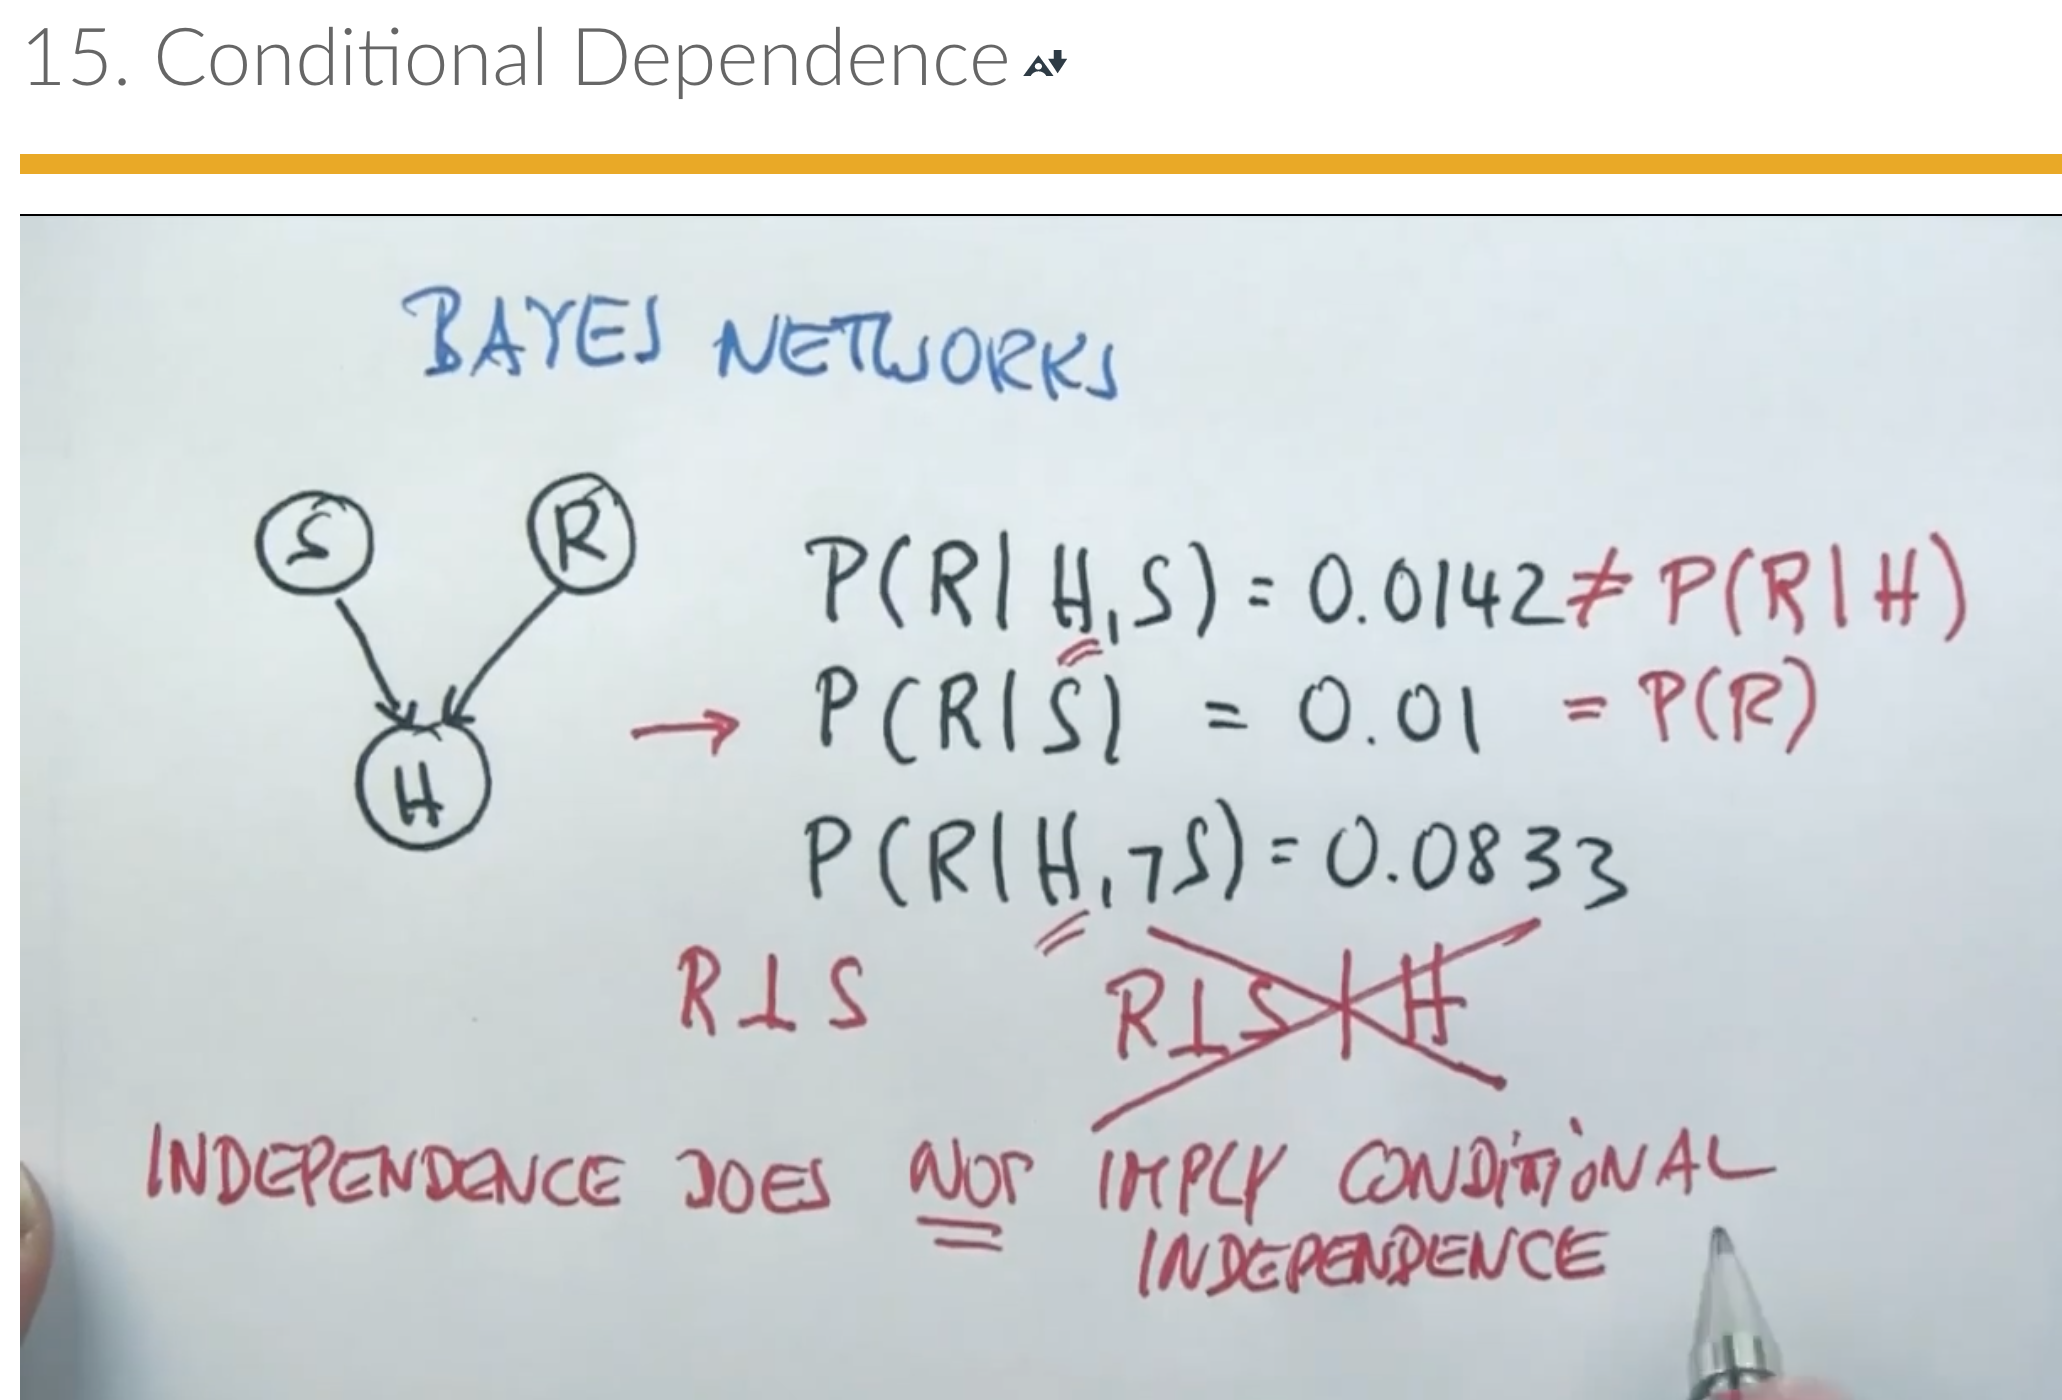 15. Conditional Dependence
BAYES NETWORKS
S R
P(R|H,S) = 0.0142 ≠ P(R|H)
→ P(R|S) = 0.01 = P(R)
H
P(R|H,¬S) = 0.0833
R⊥S R⊥S|H
INDEPENDENCE DOES NOT IMPLY CONDITIONAL
INDEPENDENCE